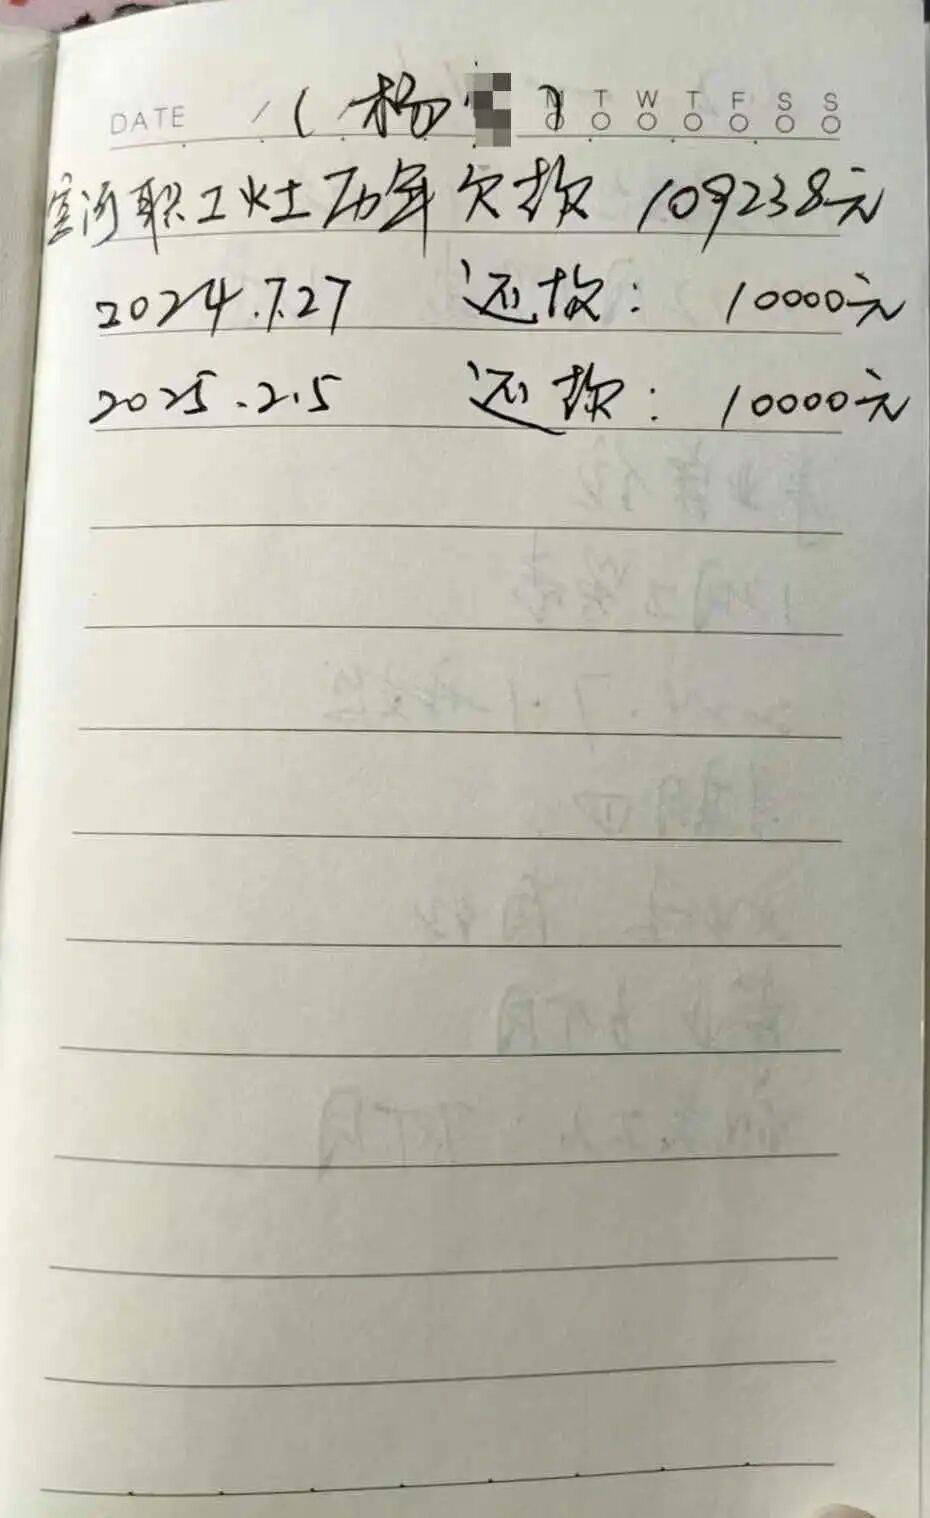 DATE / (杨) M T W T F S S
河职工灶历年欠款 109238元
2024.7.27 还款: 10000元
2025.2.5 还款: 10000元